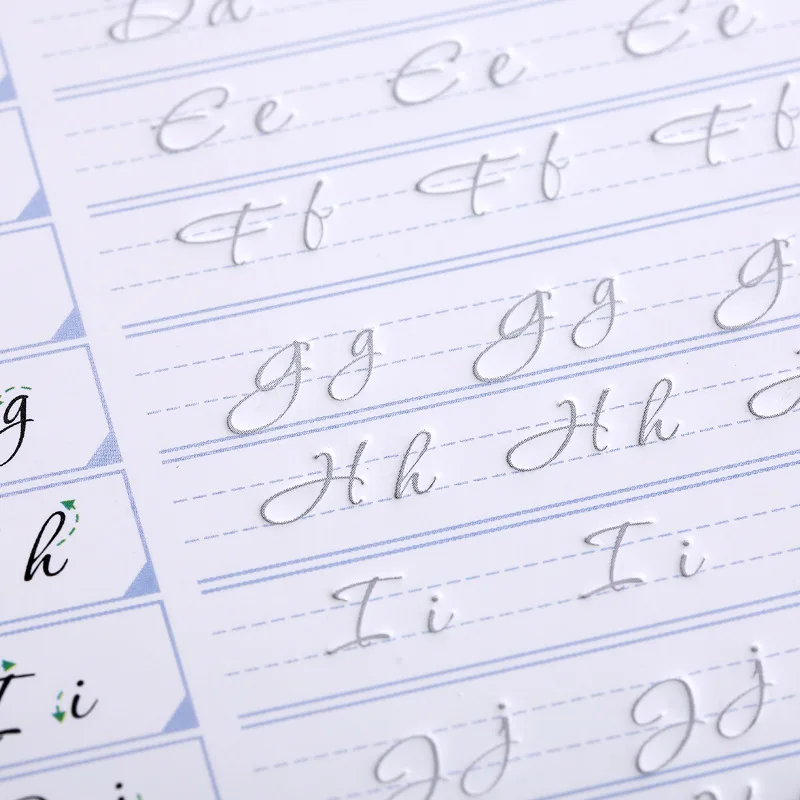 Da
Ee Ee Ee
Ff Ff Ff
g Gg Gg G
h Hh Hh H
I i Ii Ii
j Jj Jj